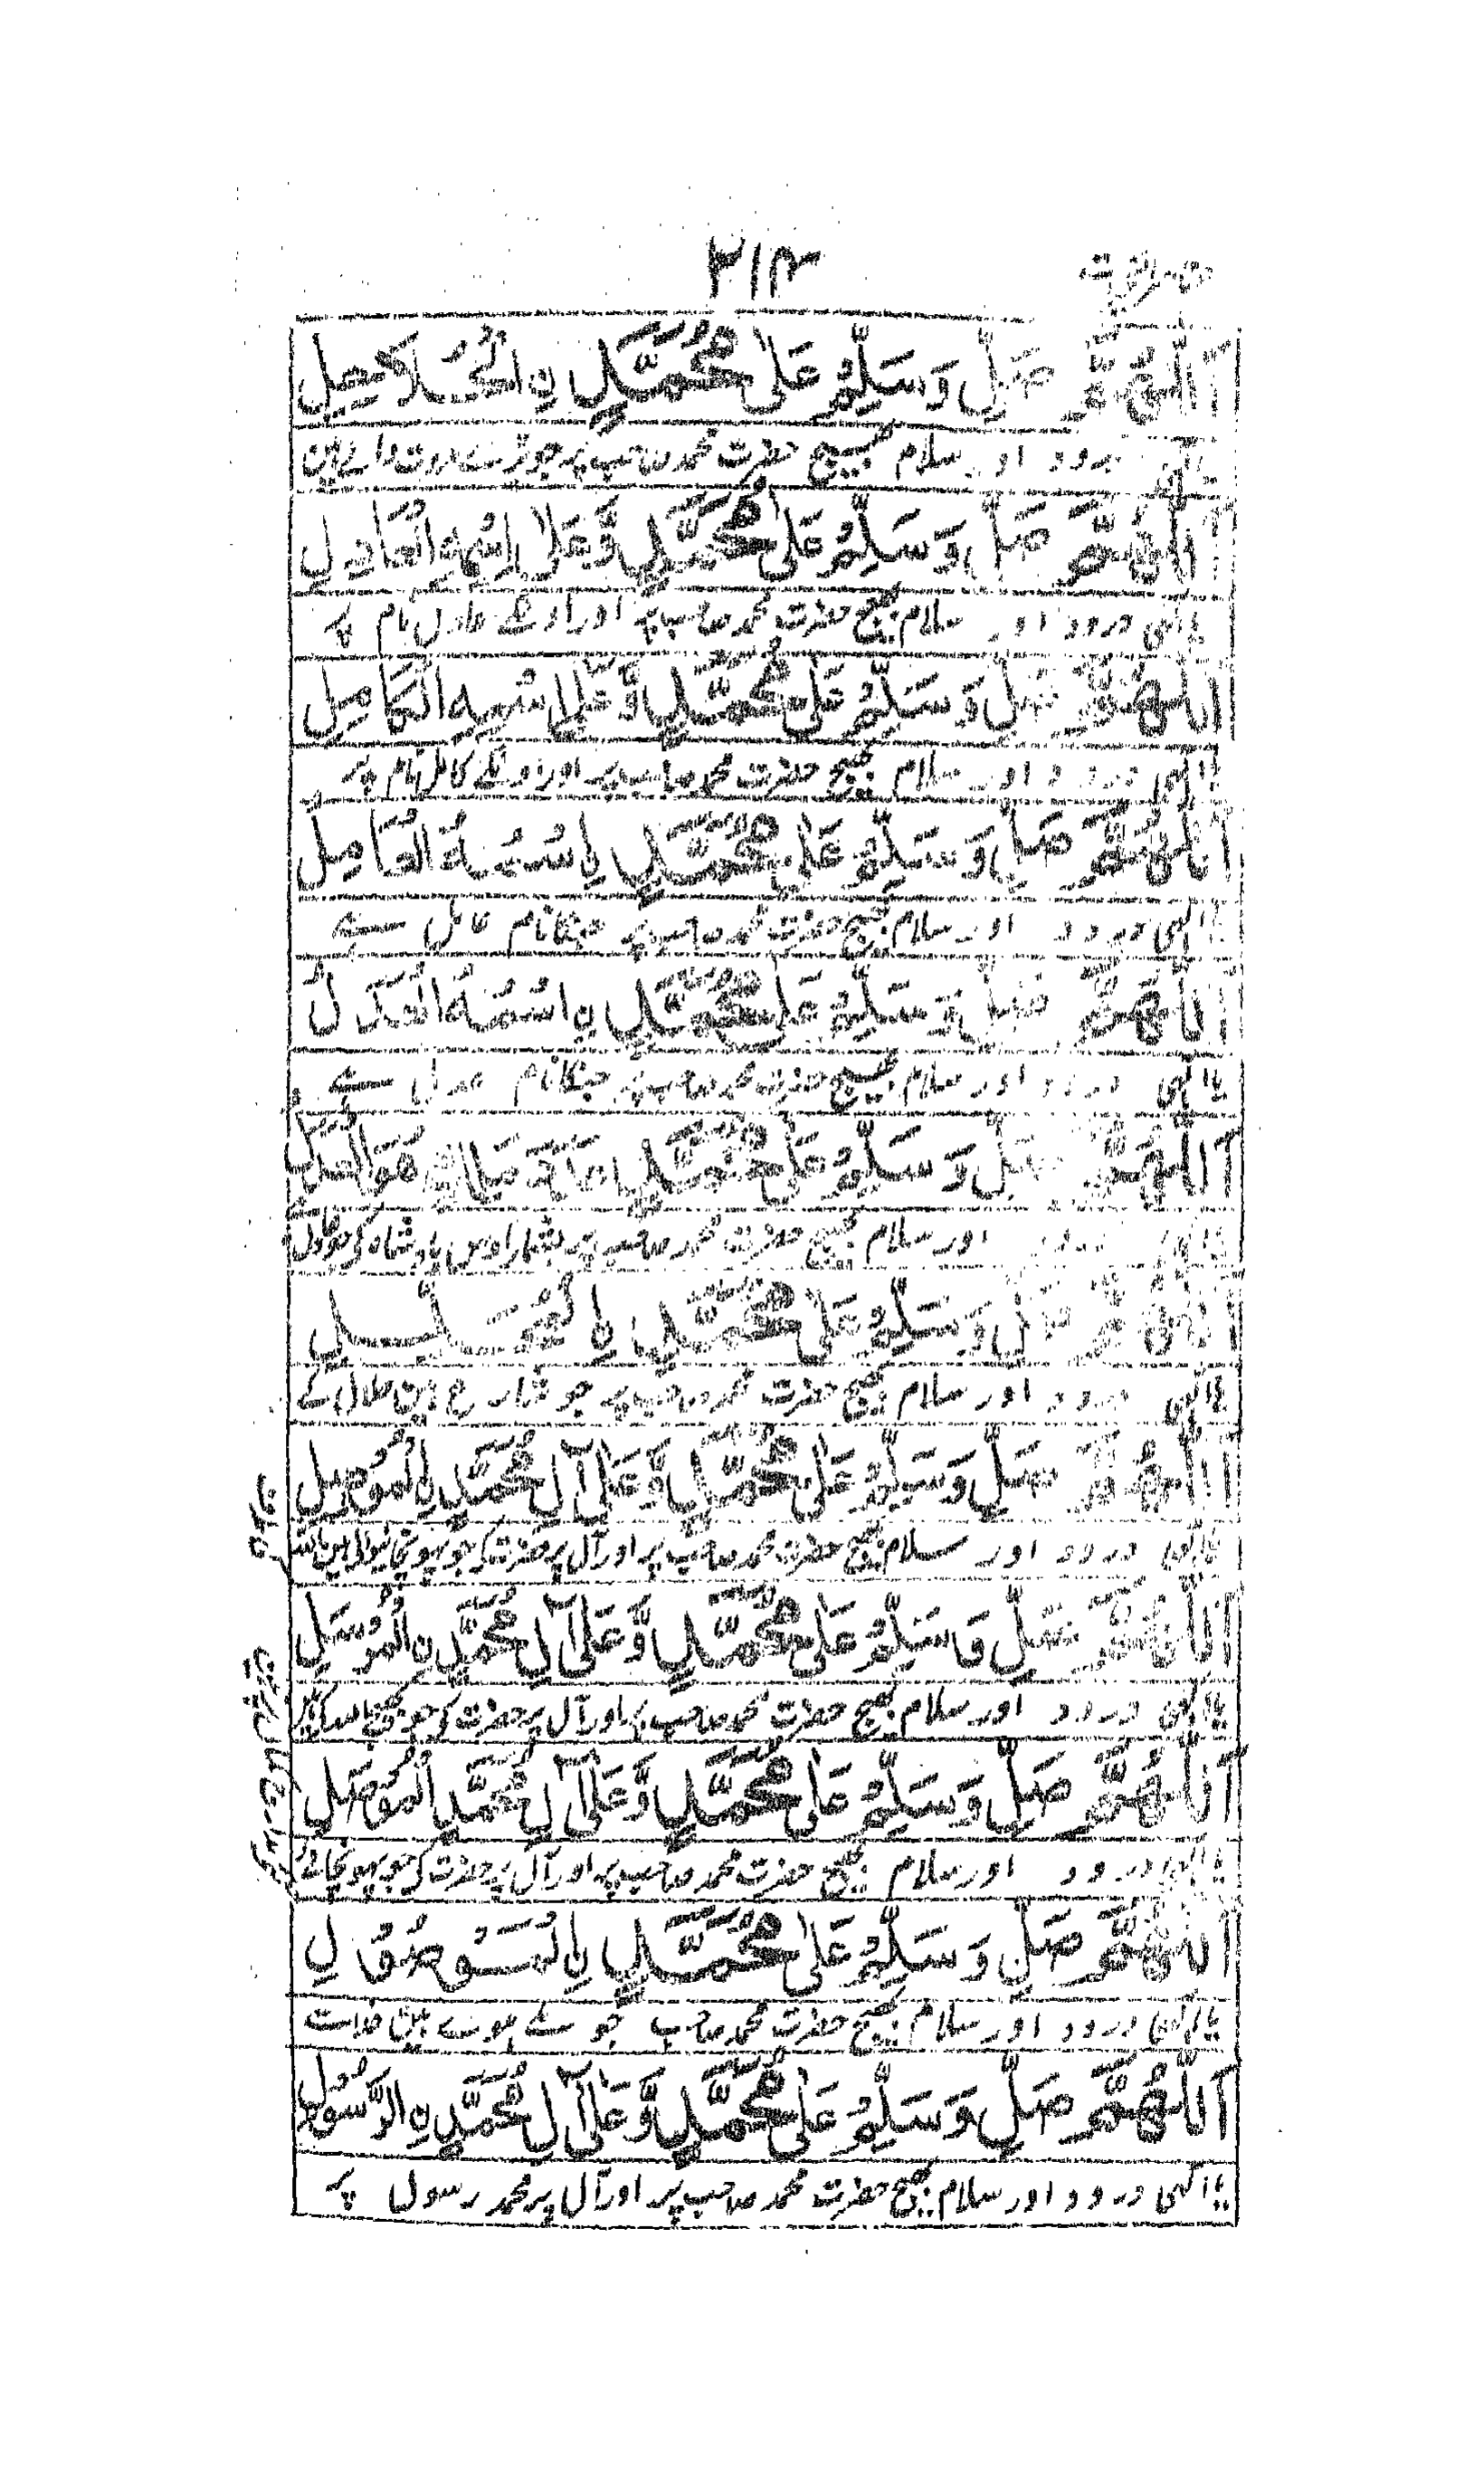 ٣١٣
اَللّٰهُمَّ صَلِّ وَسَلِّمْ عَلٰى مُحَمَّدٍ نِ
درود اور سلام بھیج حضرت محمد صاحب پر جو
اَللّٰهُمَّ صَلِّ وَسَلِّمْ عَلٰى مُحَمَّدٍ وَّعَلٰى اِسْمِهِ الْعَادِلِ
یا الٰہی درود اور سلام بھیج حضرت محمد صاحب پر اور اونکے عادل نام پر
اَللّٰهُمَّ صَلِّ وَسَلِّمْ عَلٰى مُحَمَّدٍ وَّعَلٰى اسْمِهِ الْكَامِلِ
یا الٰہی درود اور سلام بھیج حضرت محمد صاحب پر اور اونکے کامل نام پر
اَللّٰهُمَّ صَلِّ وَسَلِّمْ عَلٰى مُحَمَّدٍ نِ اسْمُهُ الْعَامِلُ
یا الٰہی درود اور سلام بھیج حضرت محمد صاحب پر جنکا نام عامل ہے
اَللّٰهُمَّ صَلِّ وَسَلِّمْ عَلٰى مُحَمَّدٍ نِ اسْمُهُ الْعَدْلُ
یا الٰہی درود اور سلام بھیج حضرت محمد صاحب پر جنکا نام عدل ہے
اَللّٰهُمَّ صَلِّ وَسَلِّمْ عَلٰى مُحَمَّدٍ هُوَ الْعَدْلُ
درود اور سلام بھیج حضرت محمد صاحب پر بشمار اوس بادشاہ کی جو عادل
اَللّٰهُمَّ صَلِّ وَسَلِّمْ عَلٰى مُحَمَّدٍ نِ
یا الٰہی درود اور سلام بھیج حضرت محمد صاحب پر جو شارع ہین حلال کے
اَللّٰهُمَّ صَلِّ وَسَلِّمْ عَلٰى مُحَمَّدٍ وَّعَلٰى اٰلِ مُحَمَّدٍ نِ الْمُوْصِلِ
یا الٰہی درود اور سلام بھیج حضرت محمد صاحب پر اور آل پر حضرت کی جو
اَللّٰهُمَّ صَلِّ وَسَلِّمْ عَلٰى مُحَمَّدٍ وَّعَلٰى اٰلِ مُحَمَّدٍ نِ الْمُرْسَلِ
یا الٰہی درود اور سلام بھیج حضرت محمد صاحب پر اور آل پر حضرت کی جو
اَللّٰهُمَّ صَلِّ وَسَلِّمْ عَلٰى مُحَمَّدٍ وَّعَلٰى اٰلِ مُحَمَّدٍ الْمُوْصَلِ
یا الٰہی درود اور سلام بھیج حضرت محمد صاحب پر اور آل پر حضرت کی جو پہونچائے
اَللّٰهُمَّ صَلِّ وَسَلِّمْ عَلٰى مُحَمَّدٍ نِ الْمَوْصُوْلِ
یا الٰہی درود اور سلام بھیج حضرت محمد صاحب جو ملے ہوے ہین خدا سے
اَللّٰهُمَّ صَلِّ وَسَلِّمْ عَلٰى مُحَمَّدٍ وَّعَلٰى اٰلِ مُحَمَّدٍ نِ الرَّسُوْلِ
یا الٰہی درود اور سلام بھیج حضرت محمد صاحب پر اور آل پر محمد رسول پر